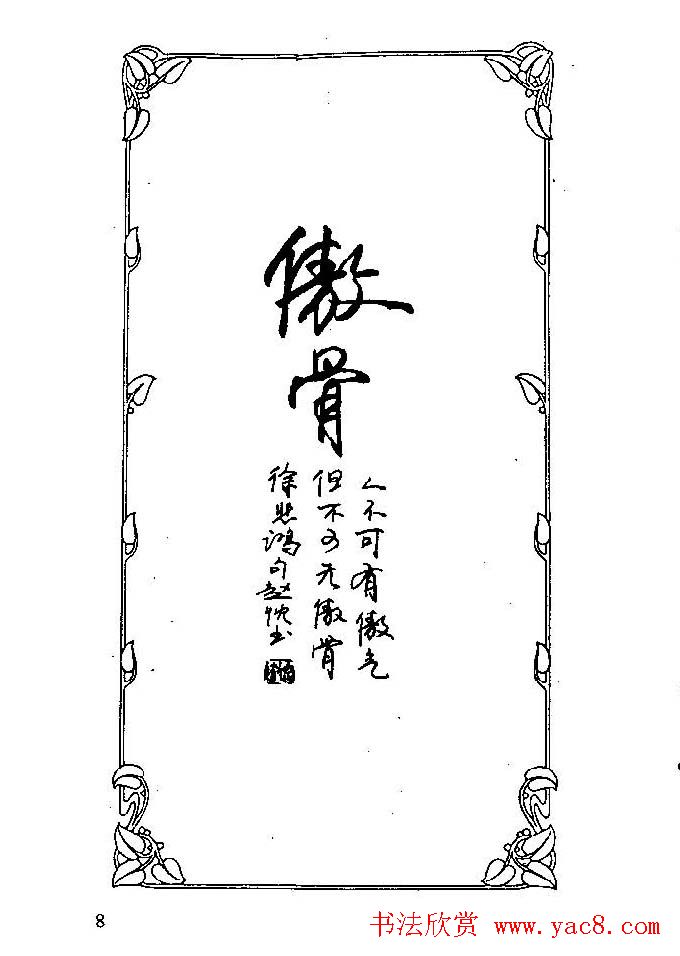 傲骨
人不可有傲气
但不可无傲骨
徐悲鸿句赵忱书
8
书法欣赏 www.yac8.com